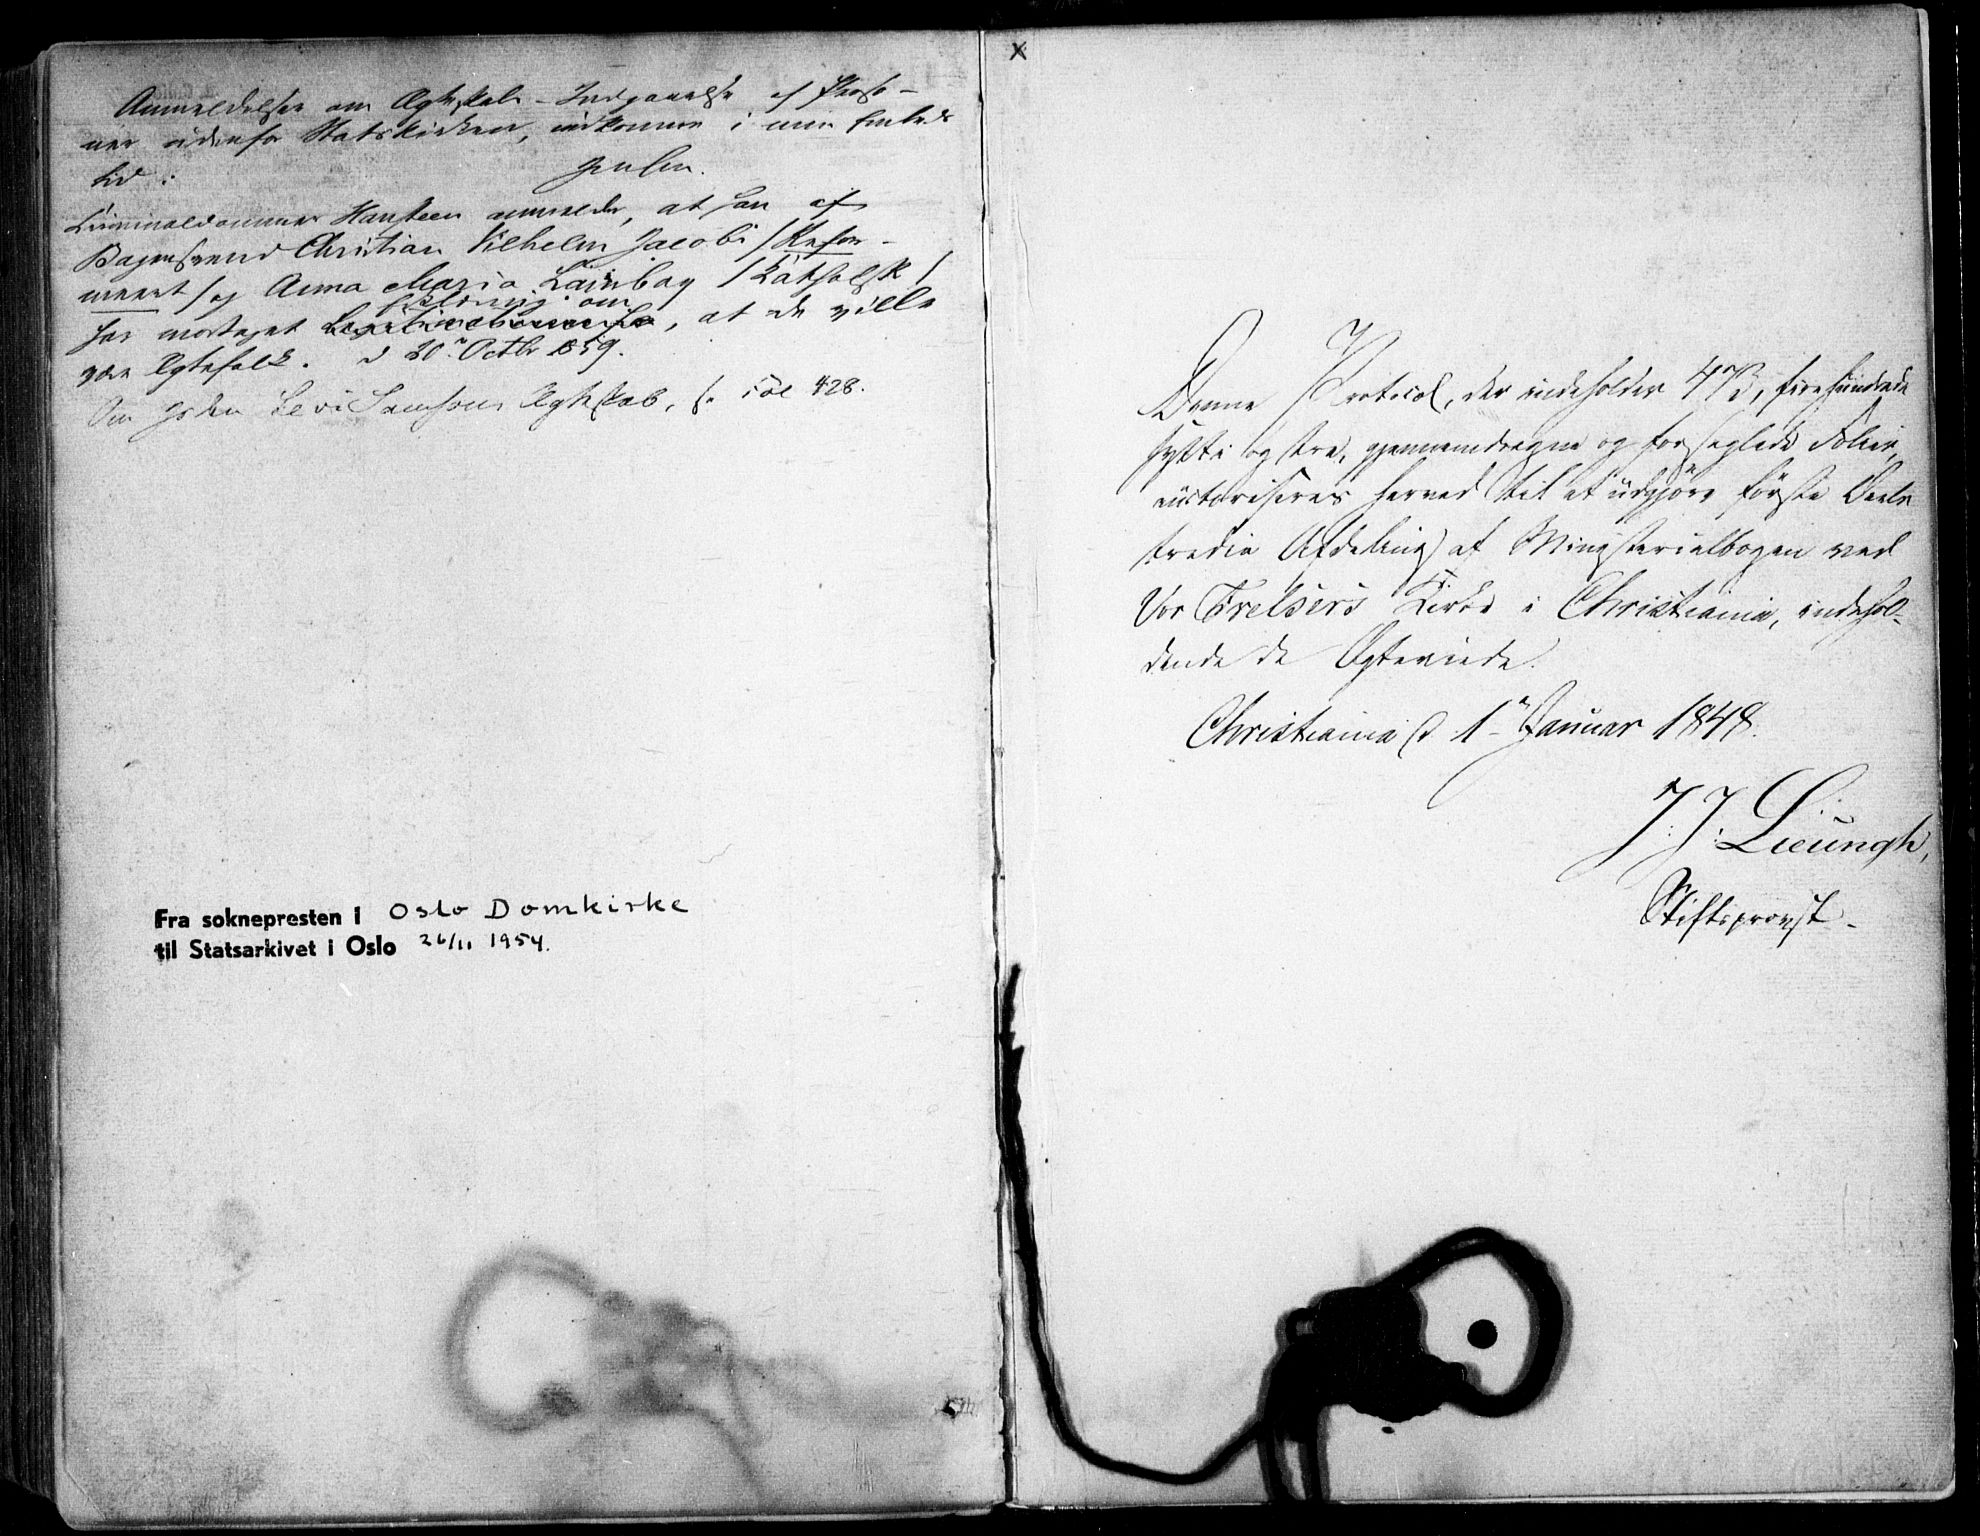 Anmeldelser om Ægteskabs-Indgaaelse af Perso-
ner udenfor Statskirken, indkomne i min Embeds
tid:
Criminaldommer Hansteen anmelder, at han af
Bagersvend Christian Vilhelm Jacobi /Refor-
meert/ og Anna Maria /Katholsk/
har modtaget Erklæring om, at de ville
være Ægtefolk. d 20de Octbr 1859.
Om Jøden Levi Samsons Ægteskab, s. Fol 428.
Fra soknepresten i Oslo Domkirke
til Statsarkivet i Oslo 26/11 1954.
X
Denne Protocol, der indeholder 473, firehundrede
sytti og tre, gjennemdragne og forseglede Folier,
autoriseres herved til at udgjøre første Deels
tredie Afdeling af Ministerialbogen ved
Vor Frelsers Kirke i Christiania, indehol-
dende de Ægteviede.
Christiania d. 1ste Januar 1848.
J. J. Lieungh,
Stiftsprovst.